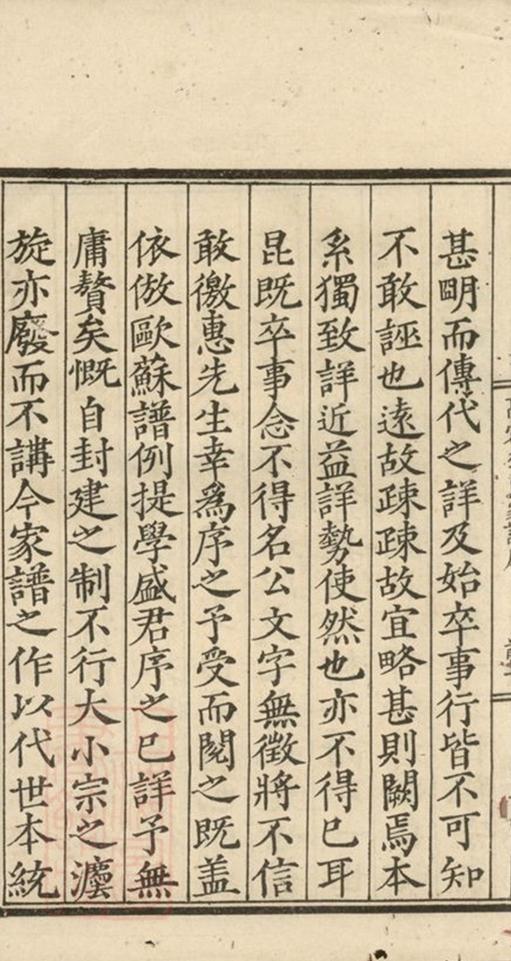 甚明而傳代之詳及始卒事行皆不可知
不敢誣也遠故疎疎故宜略甚則闕焉本
系獨致詳近益詳勢使然也亦不得已耳
昆既卒事念不得名公文字無徵將不信
敢徼惠先生幸爲序之予受而閱之既盖
依倣歐蘇譜例提學盛君序之已詳予無
庸贅矣慨自封建之制不行大小宗之灋
旋亦廢而不講今家譜之作以代世本統